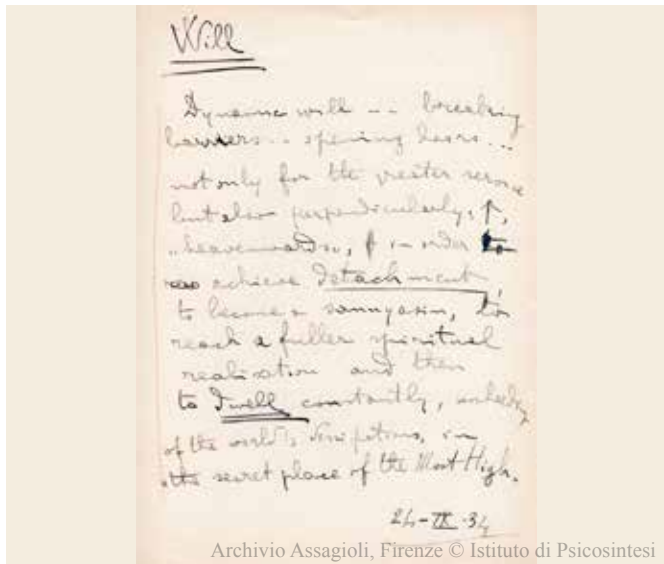 Will
Dynamic will -- breaking
barriers -- opening doors...
not only for the greater service
but also perpendicularly, ↑,
"heavenwards", ↑ in order to
achieve detachment,
to become a sannyasin, to
reach a fuller spiritual
realisation and then
to dwell constantly,
of the world's in
the secret place of the Most High.
24-IX-34
Archivio Assagioli, Firenze © Istituto di Psicosintesi